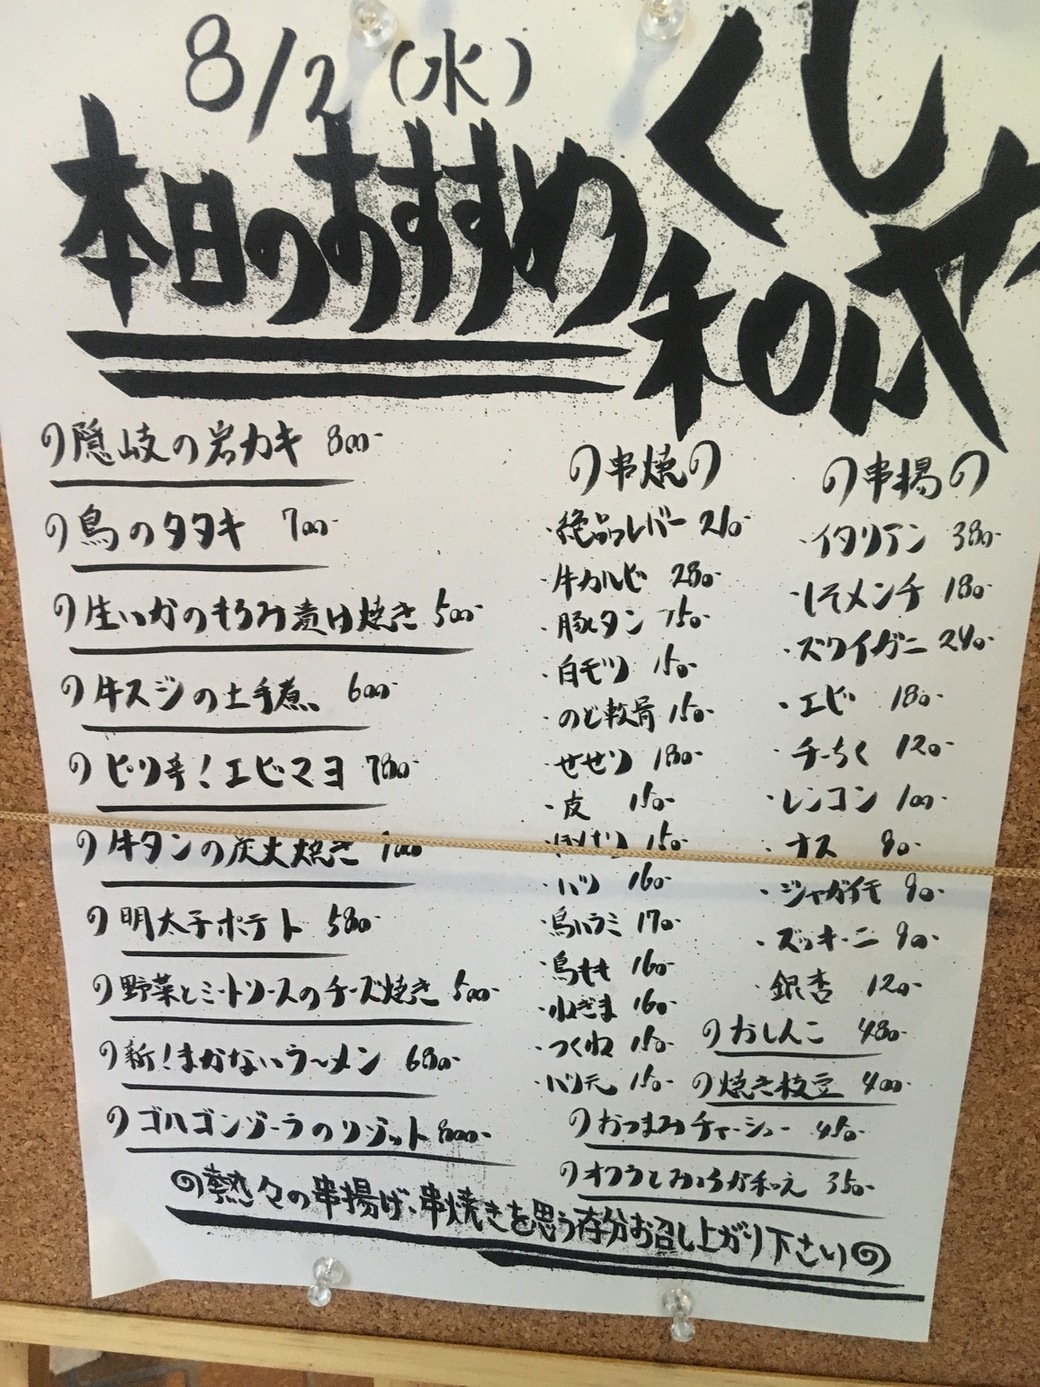 8/2(水)
本日のおすすめ
くし
和のんや
隠岐の岩カキ 800-
鳥のタタキ 700-
生いかのもろみ漬け焼き 500-
牛スジの土手煮 600-
ピリ辛!エビマヨ 780-
牛タンの炭火焼き
明太子ポテト 580-
野菜とミートソースのチーズ焼き 500-
新!まかないラ〜メン 680-
ゴルゴンゾーラのリゾット 800-
の串焼の
・絶品レバー 210-
・牛カルビ 280-
・豚タン 150-
・白モツ 150-
・のど軟骨 150-
・せせり 180-
・皮 150-
・ぼんじり 150-
・ハツ 160-
・鳥ハラミ 170-
・鳥もも 160-
・ねぎま 160-
・つくね 150-
・バラ天 150-
の串揚の
・イタリアン 380-
・しそメンチ 180-
・ズワイガニ 240-
・エビ 180-
・チーちく 120-
・レンコン 100-
・ナス 90-
・ジャガイモ 90-
・ズッキーニ 90-
・銀杏 120-
おしんこ 480-
焼き枝豆 400-
おつまみチャーシュー 450-
オクラとみょうが和え 350-
熱々の串揚げ、串焼きを思う存分お召し上がり下さい